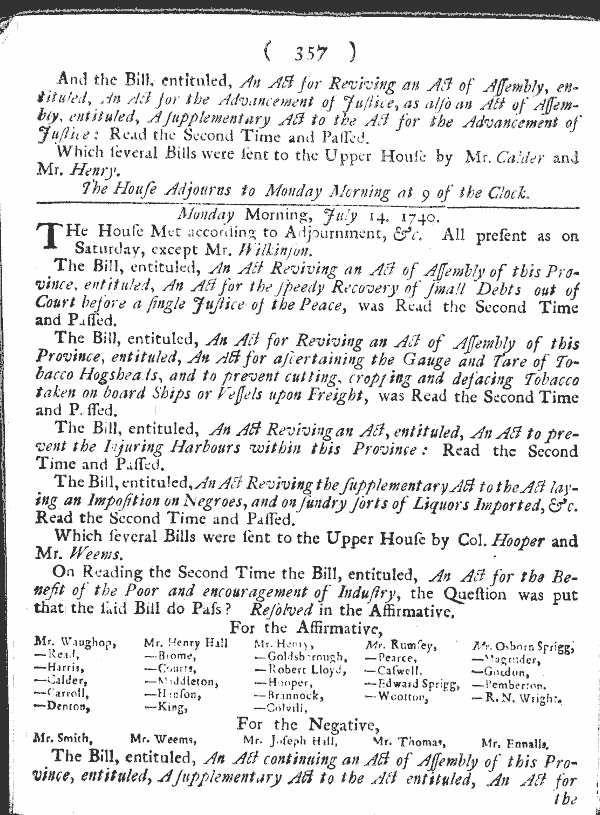 ( 357 )
And the Bill, entituled, An Act for Reviving an Act of Assembly, en-
tituled, An Act for the Advancement of Justice, as also an Act of Assem-
bly, entituled, A supplementary Act to the Act for the Advancement of
Justice: Read the Second Time and Passed.
Which several Bills were sent to the Upper House by Mr. Calder and
Mr. Henry.
The House Adjourns to Monday Morning at 9 of the Clock.
Monday Morning, July 14. 1740.
THe House Met according to Adjournment, &c. All present as on
Saturday, except Mr. Wilkinson.
The Bill, entituled, An Act Reviving an Act of Assembly of this Pro-
vince, entituled, An Act for the speedy Recovery of small Debts out of
Court before a single Justice of the Peace, was Read the Second Time
and Passed.
The Bill, entituled, An Act for Reviving an Act of Assembly of this
Province, entituled, An Act for ascertaining the Gauge and Tare of To-
bacco Hogsheads, and to prevent cutting, cropping and defacing Tobacco
taken on board Ships or Vessels upon Freight, was Read the Second Time
and Passed.
The Bill, entituled, An Act Reviving an Act, entituled, An Act to pre-
vent the Injuring Harbours within this Province: Read the Second
Time and Passed.
The Bill, entituled, An Act Reviving the supplementary Act to the Act lay-
ing an Imposition on Negroes, and on sundry sorts of Liquors Imported, &c.
Read the Second Time and Passed.
Which several Bills were sent to the Upper House by Col. Hooper and
Mr. Weems.
On Reading the Second Time the Bill, entituled, An Act for the Be-
nefit of the Poor and encouragement of Industry, the Question was put
that the said Bill do Pass? Resolved in the Affirmative.
For the Affirmative,
Mr. Waughop, Mr. Henry Hall Mr. Henry, Mr. Rumsey, Mr. Osborn Sprigg,
—Read, —Brome, —Goldsborough, —Pearce, —Magruder,
—Harris, —Courts, —Robert Lloyd, —Caswell, —Gordon,
—Calder, —Middleton, —Hooper, —Edward Sprigg, —Pemberton,
—Carroll, —Hanson, —Brannock, —Wootton, —R. N. Wright,
—Denton, —King, —Colvill,
For the Negative,
Mr. Smith, Mr. Weems, Mr. Joseph Hall, Mr. Thomas, Mr. Ennalls,
The Bill, entituled, An Act continuing an Act of Assembly of this Pro-
vince, entituled, A supplementary Act to the Act entituled, An Act for
the